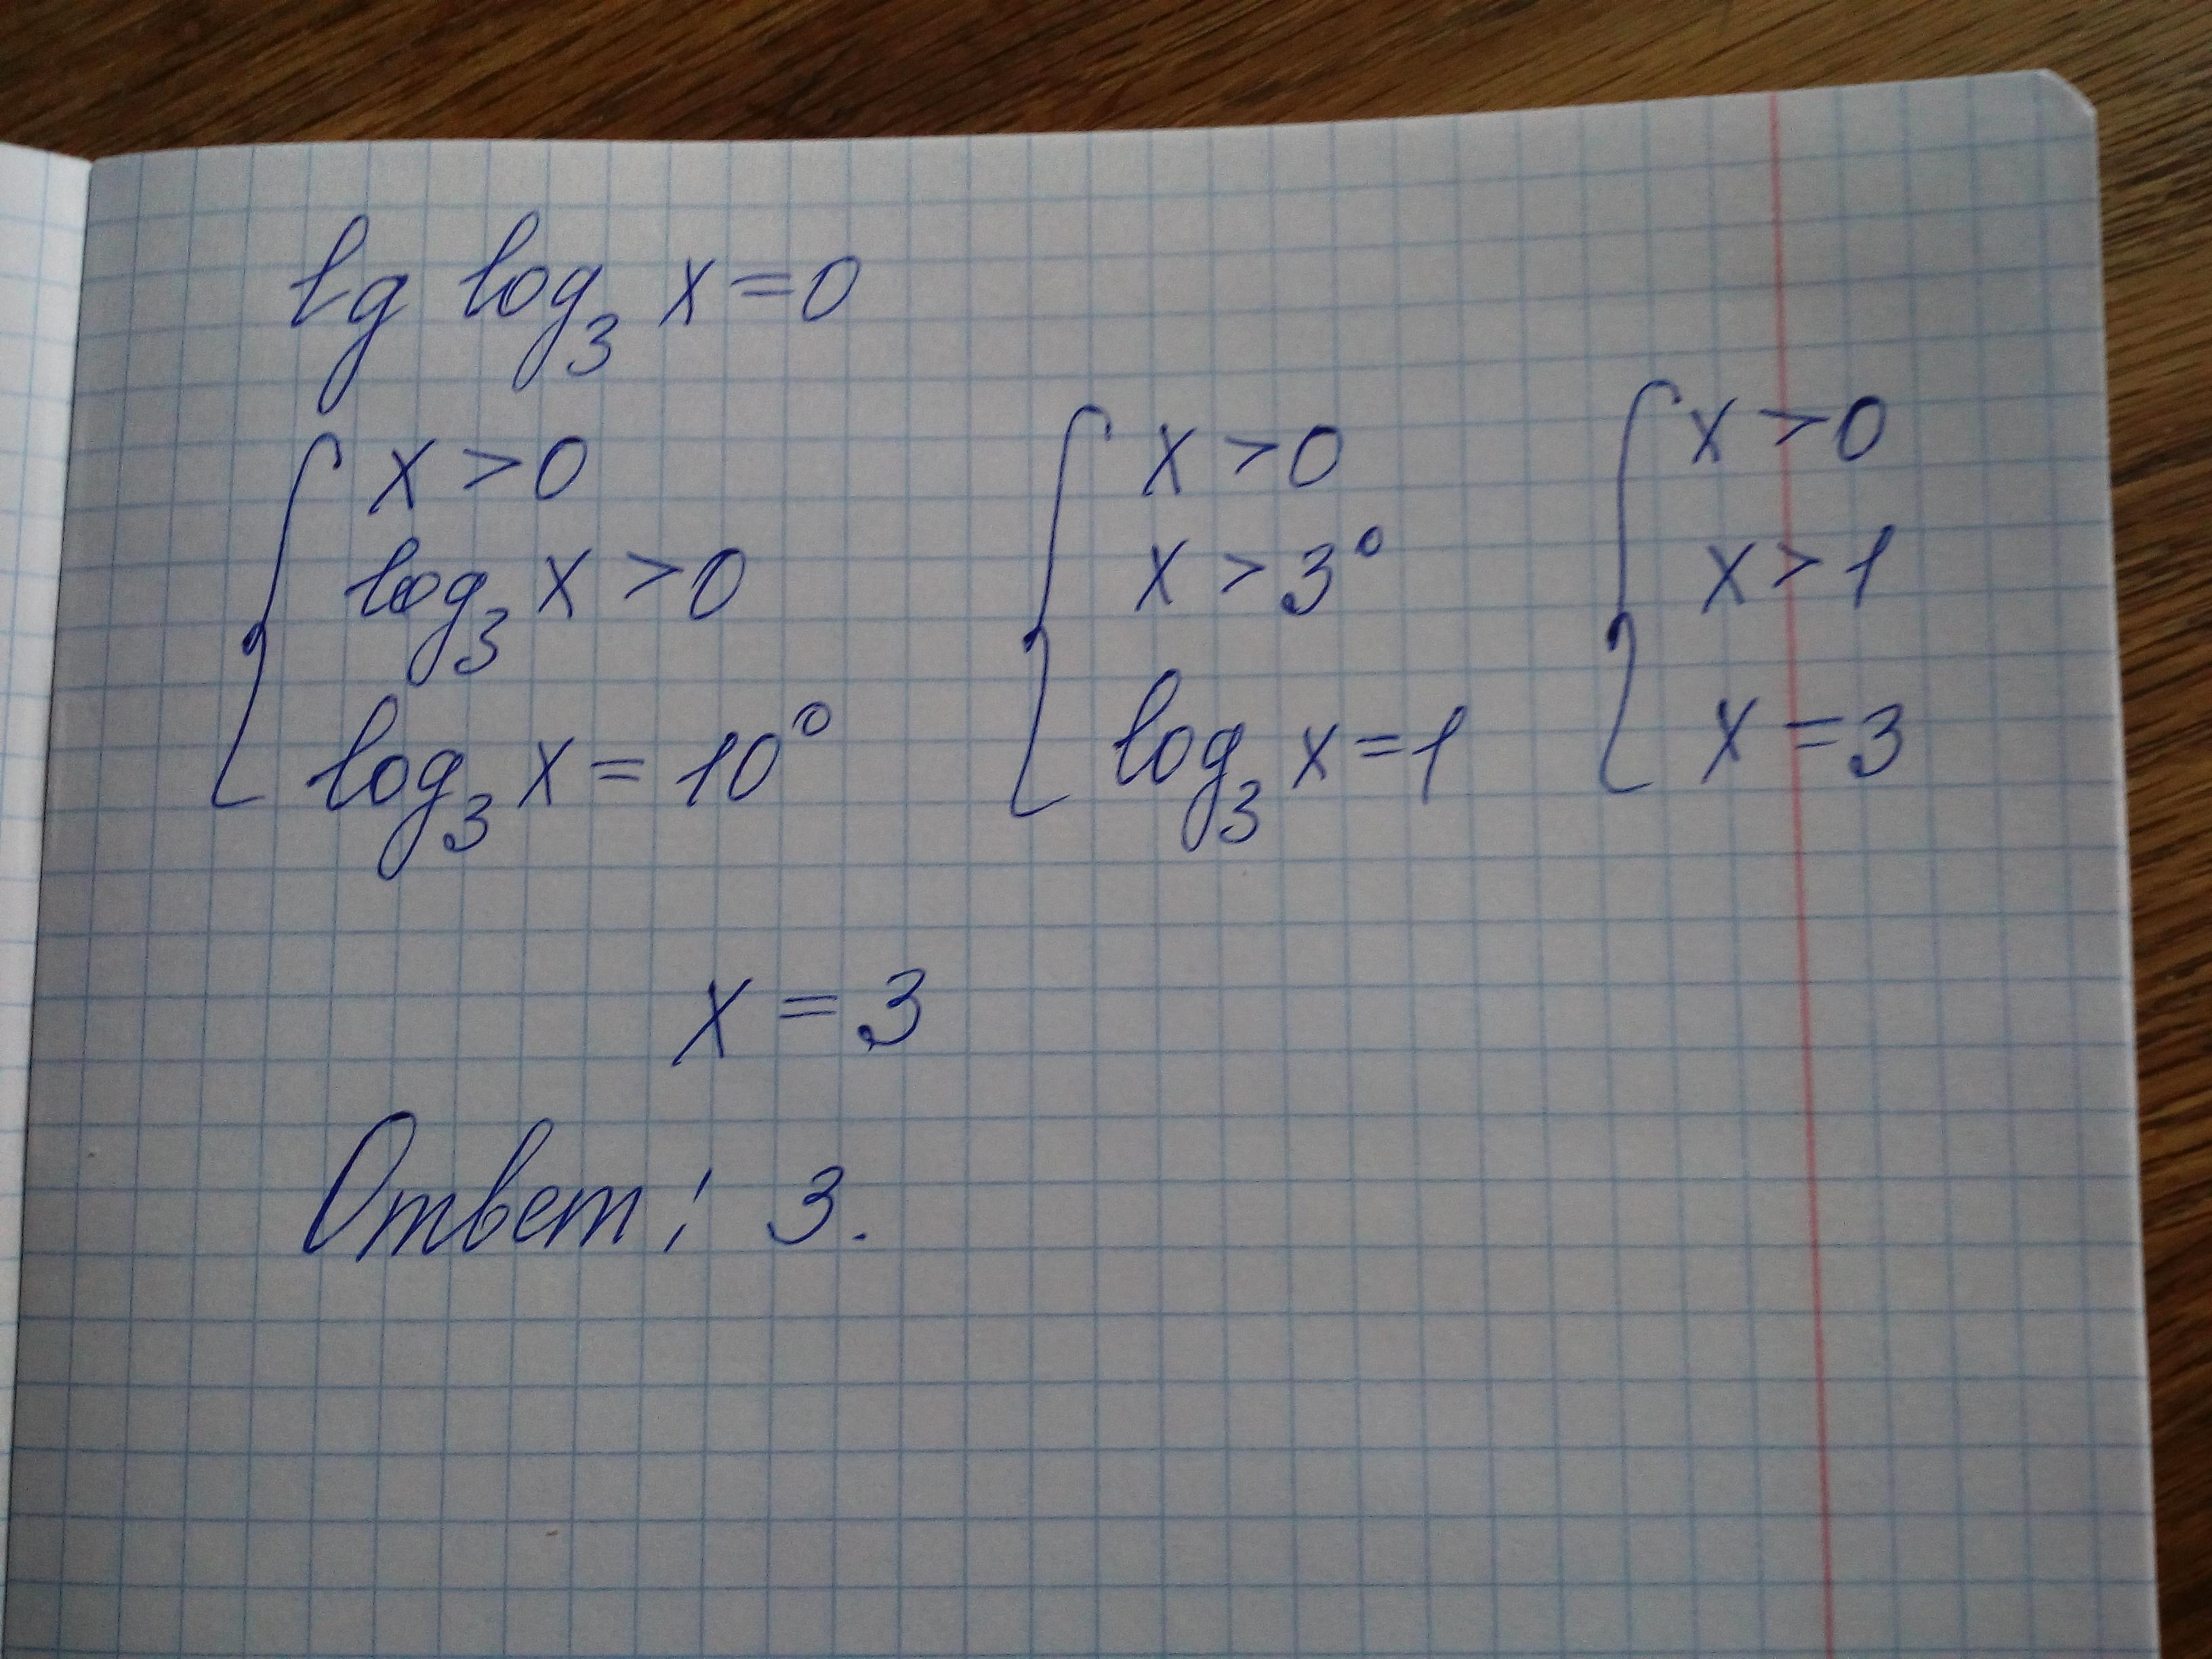 lg log₃ x = 0
x > 0
log₃ x > 0
log₃ x = 10⁰
x > 0
x > 3⁰
log₃ x = 1
x > 0
x > 1
x = 3
x = 3
Ответ: 3.